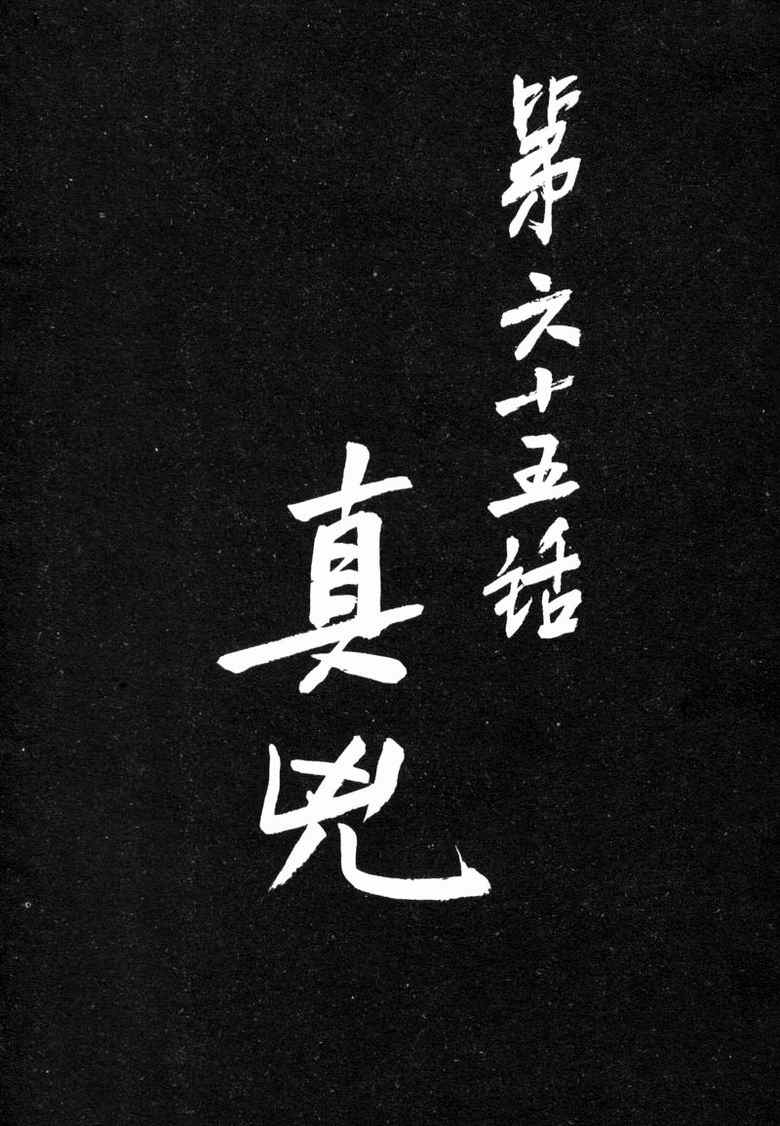 第六十五话
真兇